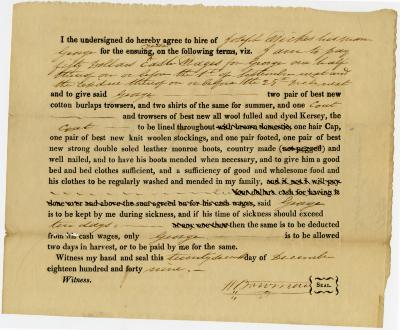 I the undersigned do hereby agree to hire of Joseph his man
George for the ensuing, on the following terms, viz. I am to pay
fifty dollars Cash Wages for George one half
on or before the 1st of September next and
the on or before the 25th
and to give said George two pair of best new
cotton burlaps trowsers, and two shirts of the same for summer, and one Coat
and trowsers of best new all wool fulled and dyed Kersey, the
Coat to be lined throughout with brown domestic, one hair Cap,
one pair of best new knit woollen stockings, and one pair footed, one pair of best
new strong double soled leather monroe boots, country made (not pegged) and
well nailed, and to have his boots mended when necessary, and to give him a good
bed and bed clothes sufficient, and a sufficiency of good and wholesome food and
his clothes to be regularly washed and mended in my family, and if not I will pay
four dollars cash for having it
done over and above the sum agreed on for his cash wages, said George
is to be kept by me during sickness, and if his time of sickness should exceed
ten days, at any one time then the same is to be deducted
from his cash wages, only George is to be allowed
two days in harvest, or to be paid by me for the same.
Witness my hand and seal this day of December
eighteen hundred and forty nine.
Witness. Bowman SEAL.